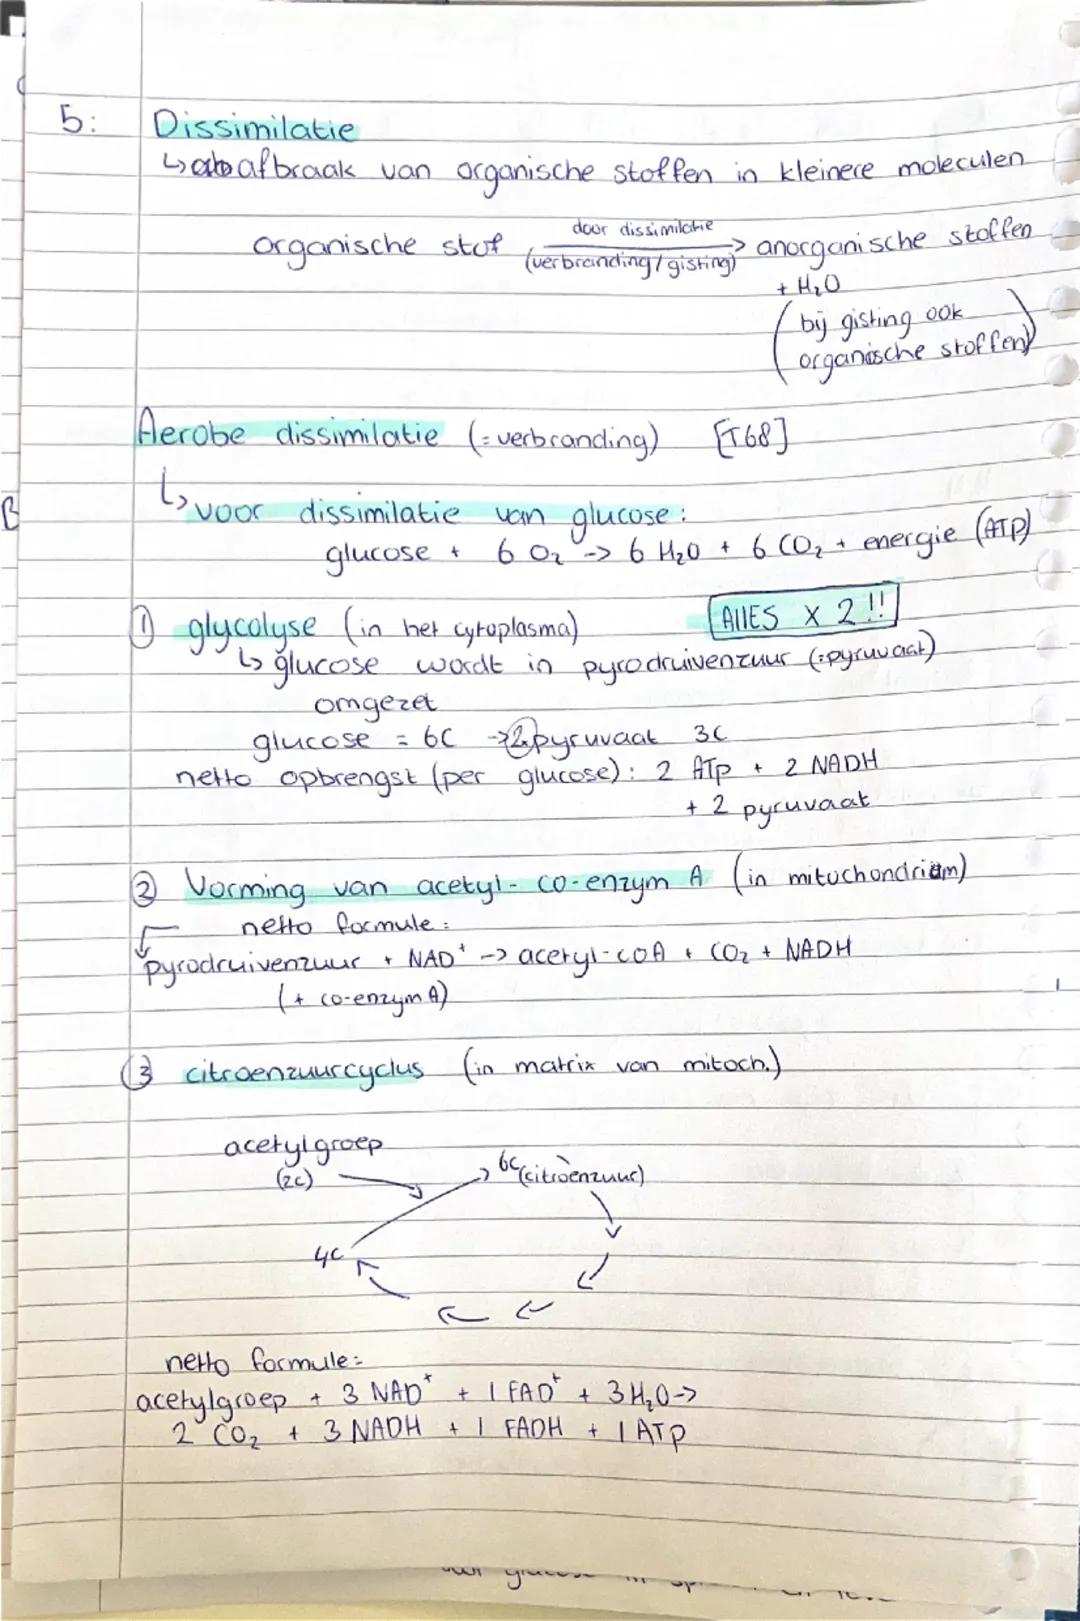 5: Dissimilatie
↳ afbraak van organische stoffen in kleinere moleculen
door dissimilatie
organische stof → anorganische stoffen
(verbranding/gisting)
+ H₂O
(bij gisting ook
organische stoffen)
Aerobe dissimilatie (=verbranding) [T68]
↳ voor dissimilatie van glucose:
glucose + 6 O₂ -> 6 H₂O + 6 CO₂ + energie (ATP)
① glycolyse (in het cytoplasma) AllES X 2!!
↳ glucose wordt in pyrodruivenzuur (=pyruvaat)
omgezet
glucose = 6C -> 2 pyruvaat 3C
netto opbrengst (per glucose): 2 ATP + 2 NADH
+ 2 pyruvaat
② Vorming van acetyl-co-enzym A (in mitochondrium)
netto formule:
pyrodruivenzuur + NAD⁺ -> acetyl-COA + CO₂ + NADH
(+ co-enzym A)
③ citroenzuurcyclus (in matrix van mitoch.)
acetylgroep
(2C)
6C (citroenzuur)
4C
netto formule:
acetylgroep + 3 NAD⁺ + 1 FAD⁺ + 3 H₂O ->
2 CO₂ + 3 NADH + 1 FADH + 1 ATP